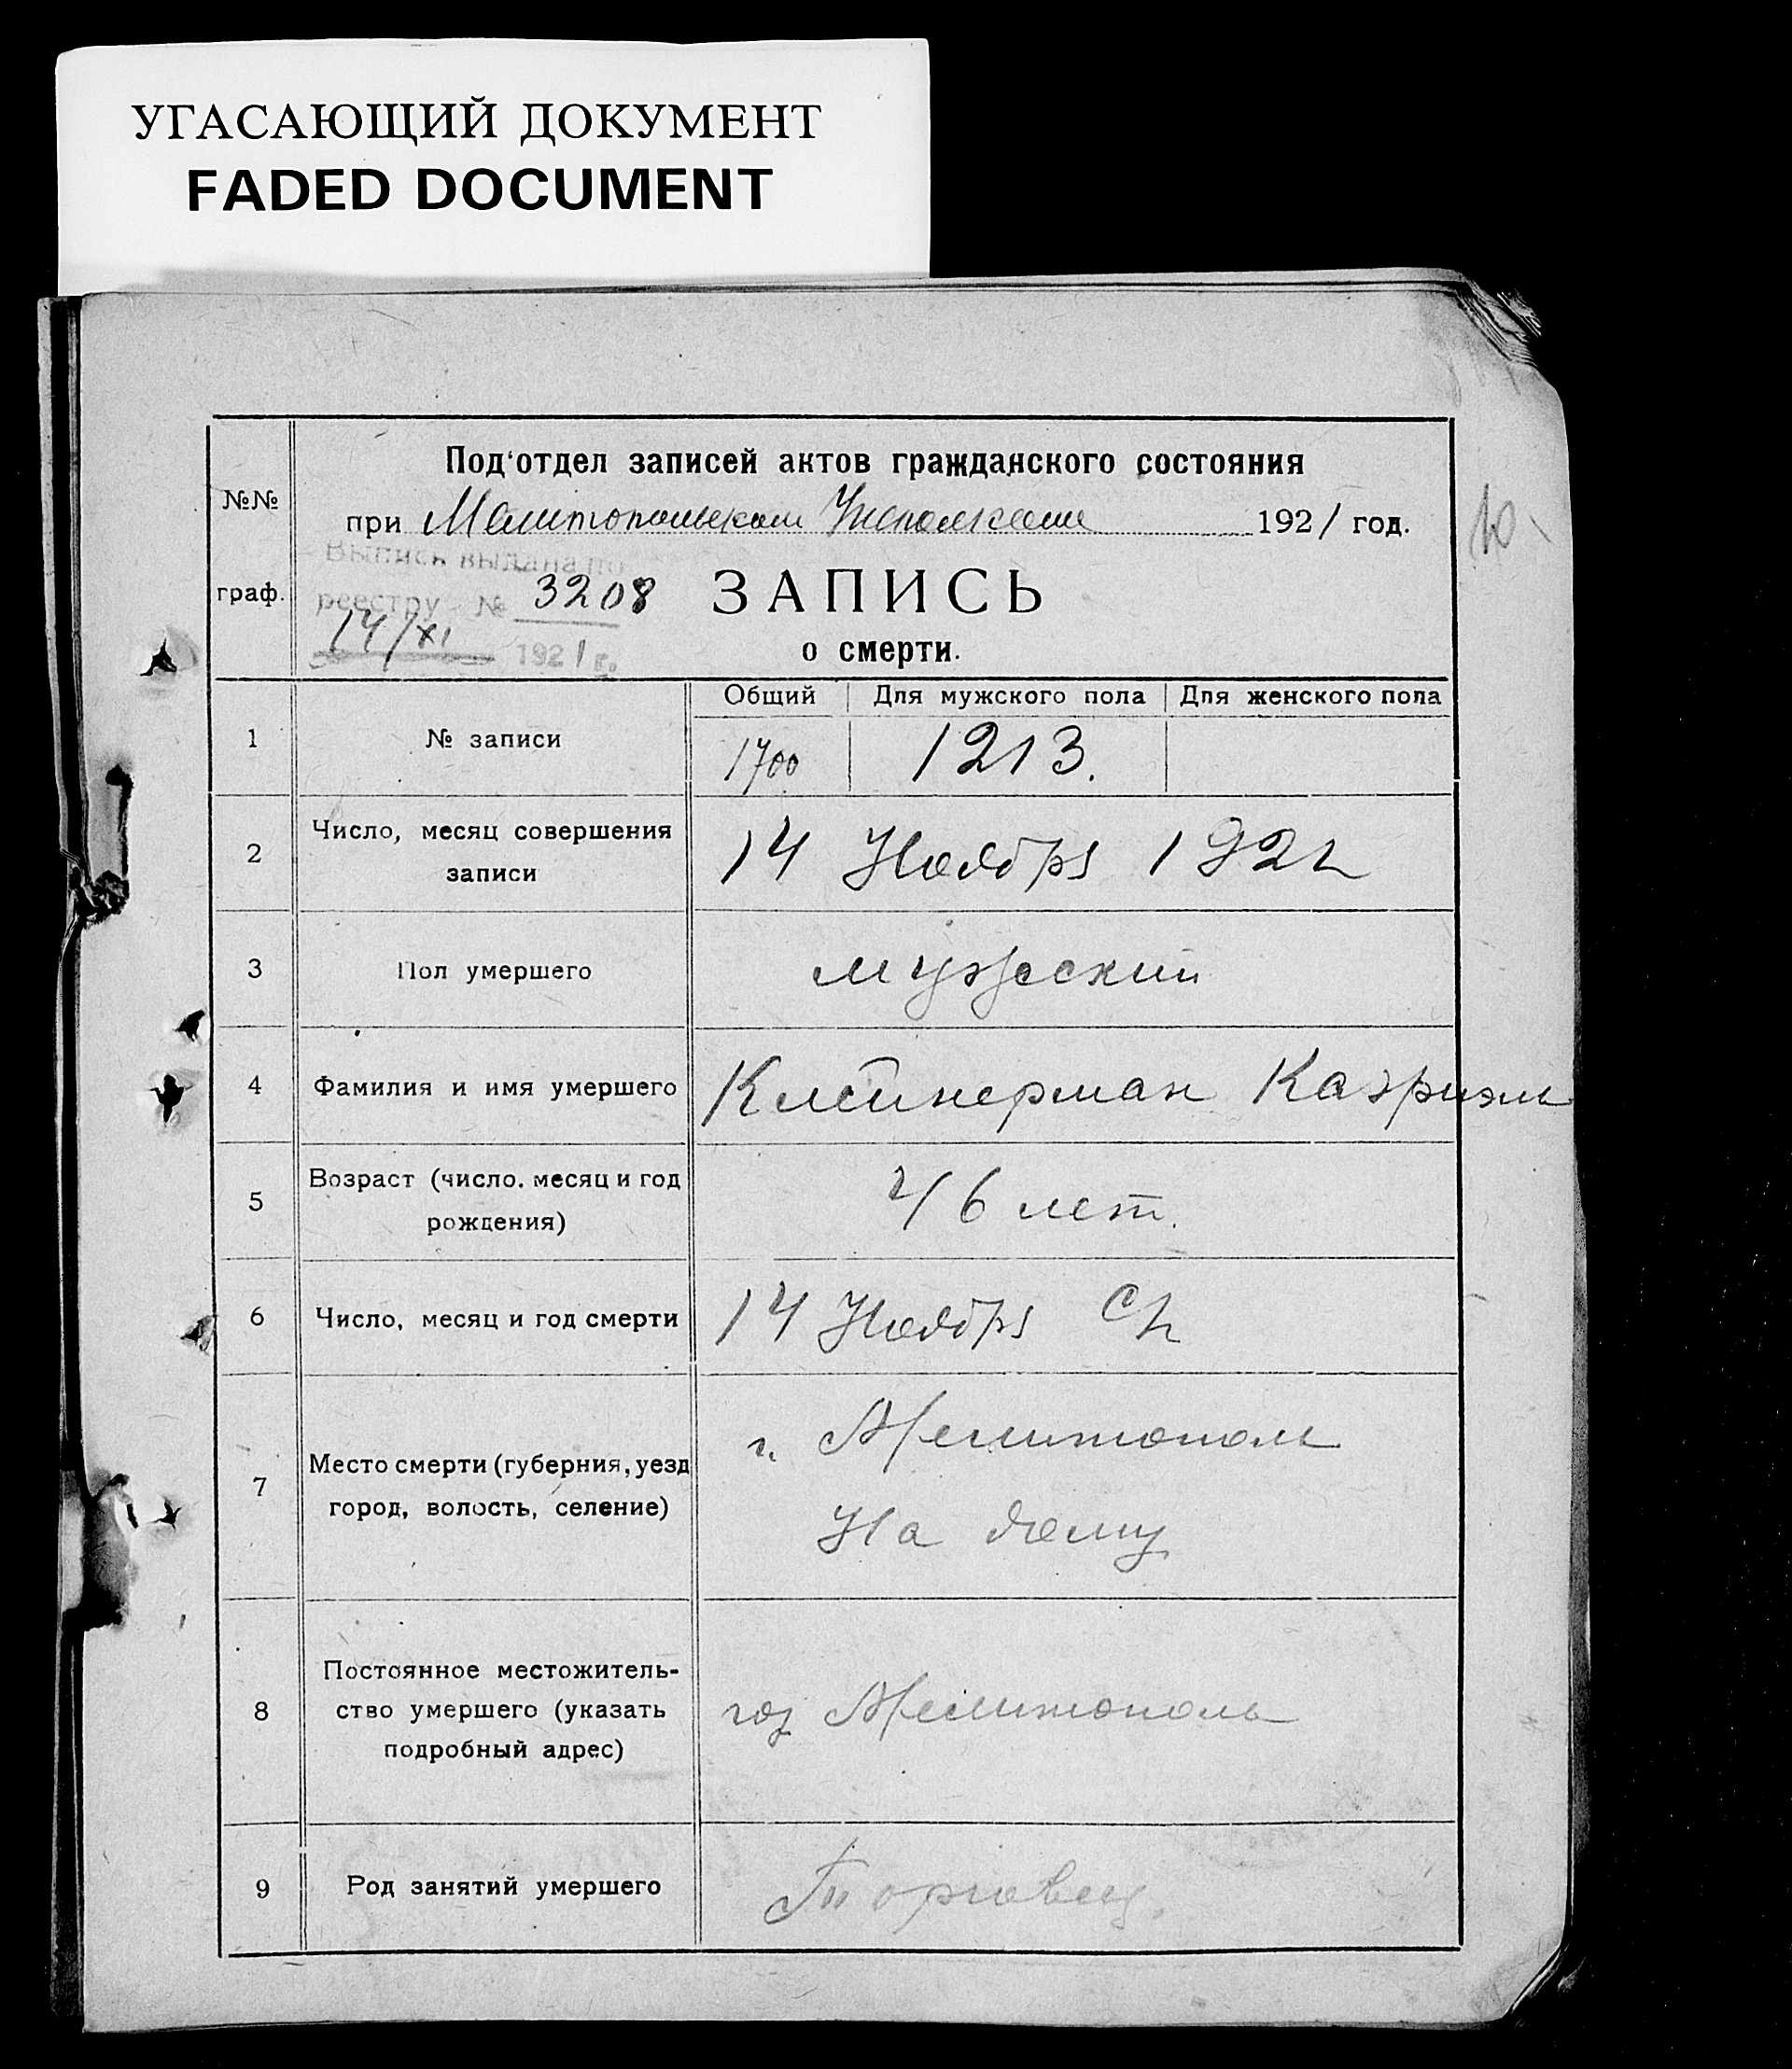 УГАСАЮЩИЙ ДОКУМЕНТ
FADED DOCUMENT
№№
граф.
Под'отдел записей актов гражданского состояния
при Мелитопольском Уисполкоме 1921 год.
Выпись выдана по
реестру № 3208
14/XI 1921 г.
ЗАПИСЬ
о смерти.
Общий Для мужского пола Для женского пола
1 № записи 1700 1213.
2 Число, месяц совершения
записи
14 Ноября 1921
3 Пол умершего мужеский
4 Фамилия и имя умершего Клейнерман Казриэль
5 Возраст (число. месяц и год
рождения)
46 лет.
6 Число, месяц и год смерти 14 Ноября с/г
7 Место смерти (губерния, уезд
город, волость, селение)
г. Мелитополь
На дому
8 Постоянное местожитель-
ство умершего (указать
подробный адрес)
гор Мелитополь
9 Род занятий умершего Торговец.